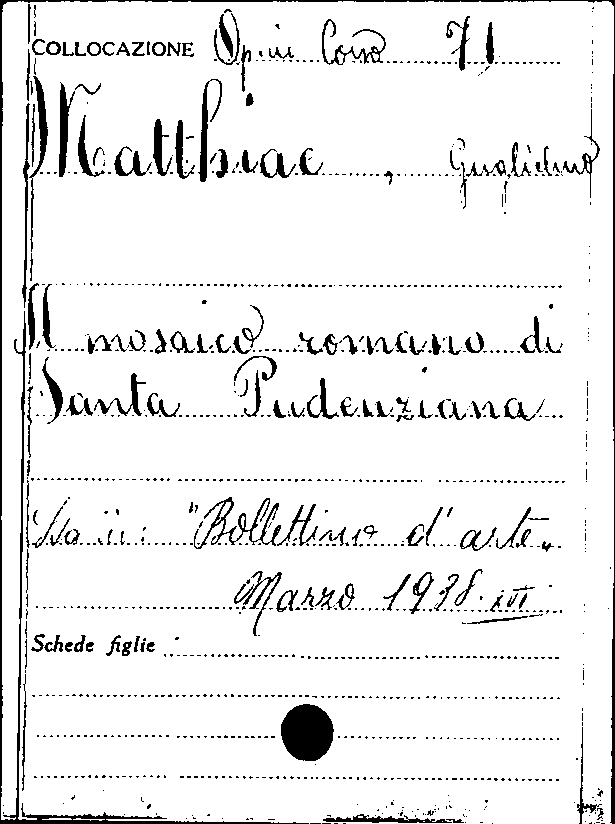 COLLOCAZIONE Op. in Corso 71
Matthiae, Guglielmo
Il mosaico romano di
Santa Pudenziana
Sta in: "Bollettino d'arte"
Marzo 1938. XVI
Schede figlie